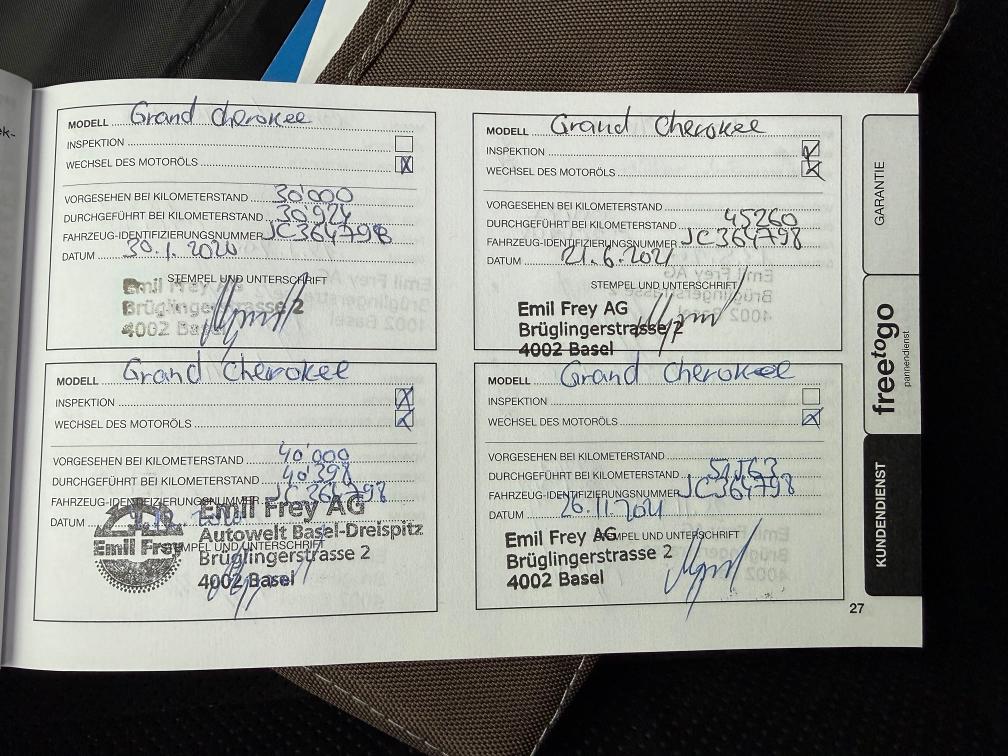 MODELL Grand Cherokee
INSPEKTION
WECHSEL DES MOTORÖLS X
VORGESEHEN BEI KILOMETERSTAND 30'000
DURCHGEFÜHRT BEI KILOMETERSTAND 30'924
FAHRZEUG-IDENTIFIZIERUNGSNUMMER JC364798
DATUM 30.1.2020
STEMPEL UND UNTERSCHRIFT
Emil Frey AG
Brüglingerstrasse 2
4002 Basel
MODELL Grand Cherokee
INSPEKTION X
WECHSEL DES MOTORÖLS X
VORGESEHEN BEI KILOMETERSTAND 40'000
DURCHGEFÜHRT BEI KILOMETERSTAND 40'398
FAHRZEUG-IDENTIFIZIERUNGSNUMMER JC364798
DATUM
STEMPEL UND UNTERSCHRIFT
Emil Frey
Emil Frey AG
Autowelt Basel-Dreispitz
Brüglingerstrasse 2
4002 Basel
MODELL Grand Cherokee
INSPEKTION X
WECHSEL DES MOTORÖLS X
VORGESEHEN BEI KILOMETERSTAND
DURCHGEFÜHRT BEI KILOMETERSTAND 45260
FAHRZEUG-IDENTIFIZIERUNGSNUMMER JC364798
DATUM 21.6.2021
STEMPEL UND UNTERSCHRIFT
Emil Frey AG
Brüglingerstrasse 2
4002 Basel
MODELL Grand Cherokee
INSPEKTION
WECHSEL DES MOTORÖLS X
VORGESEHEN BEI KILOMETERSTAND
DURCHGEFÜHRT BEI KILOMETERSTAND
FAHRZEUG-IDENTIFIZIERUNGSNUMMER JC364798
DATUM 26.11.2021
STEMPEL UND UNTERSCHRIFT
Emil Frey AG
Brüglingerstrasse 2
4002 Basel
GARANTIE
freetogo
pannendienst
KUNDENDIENST
27